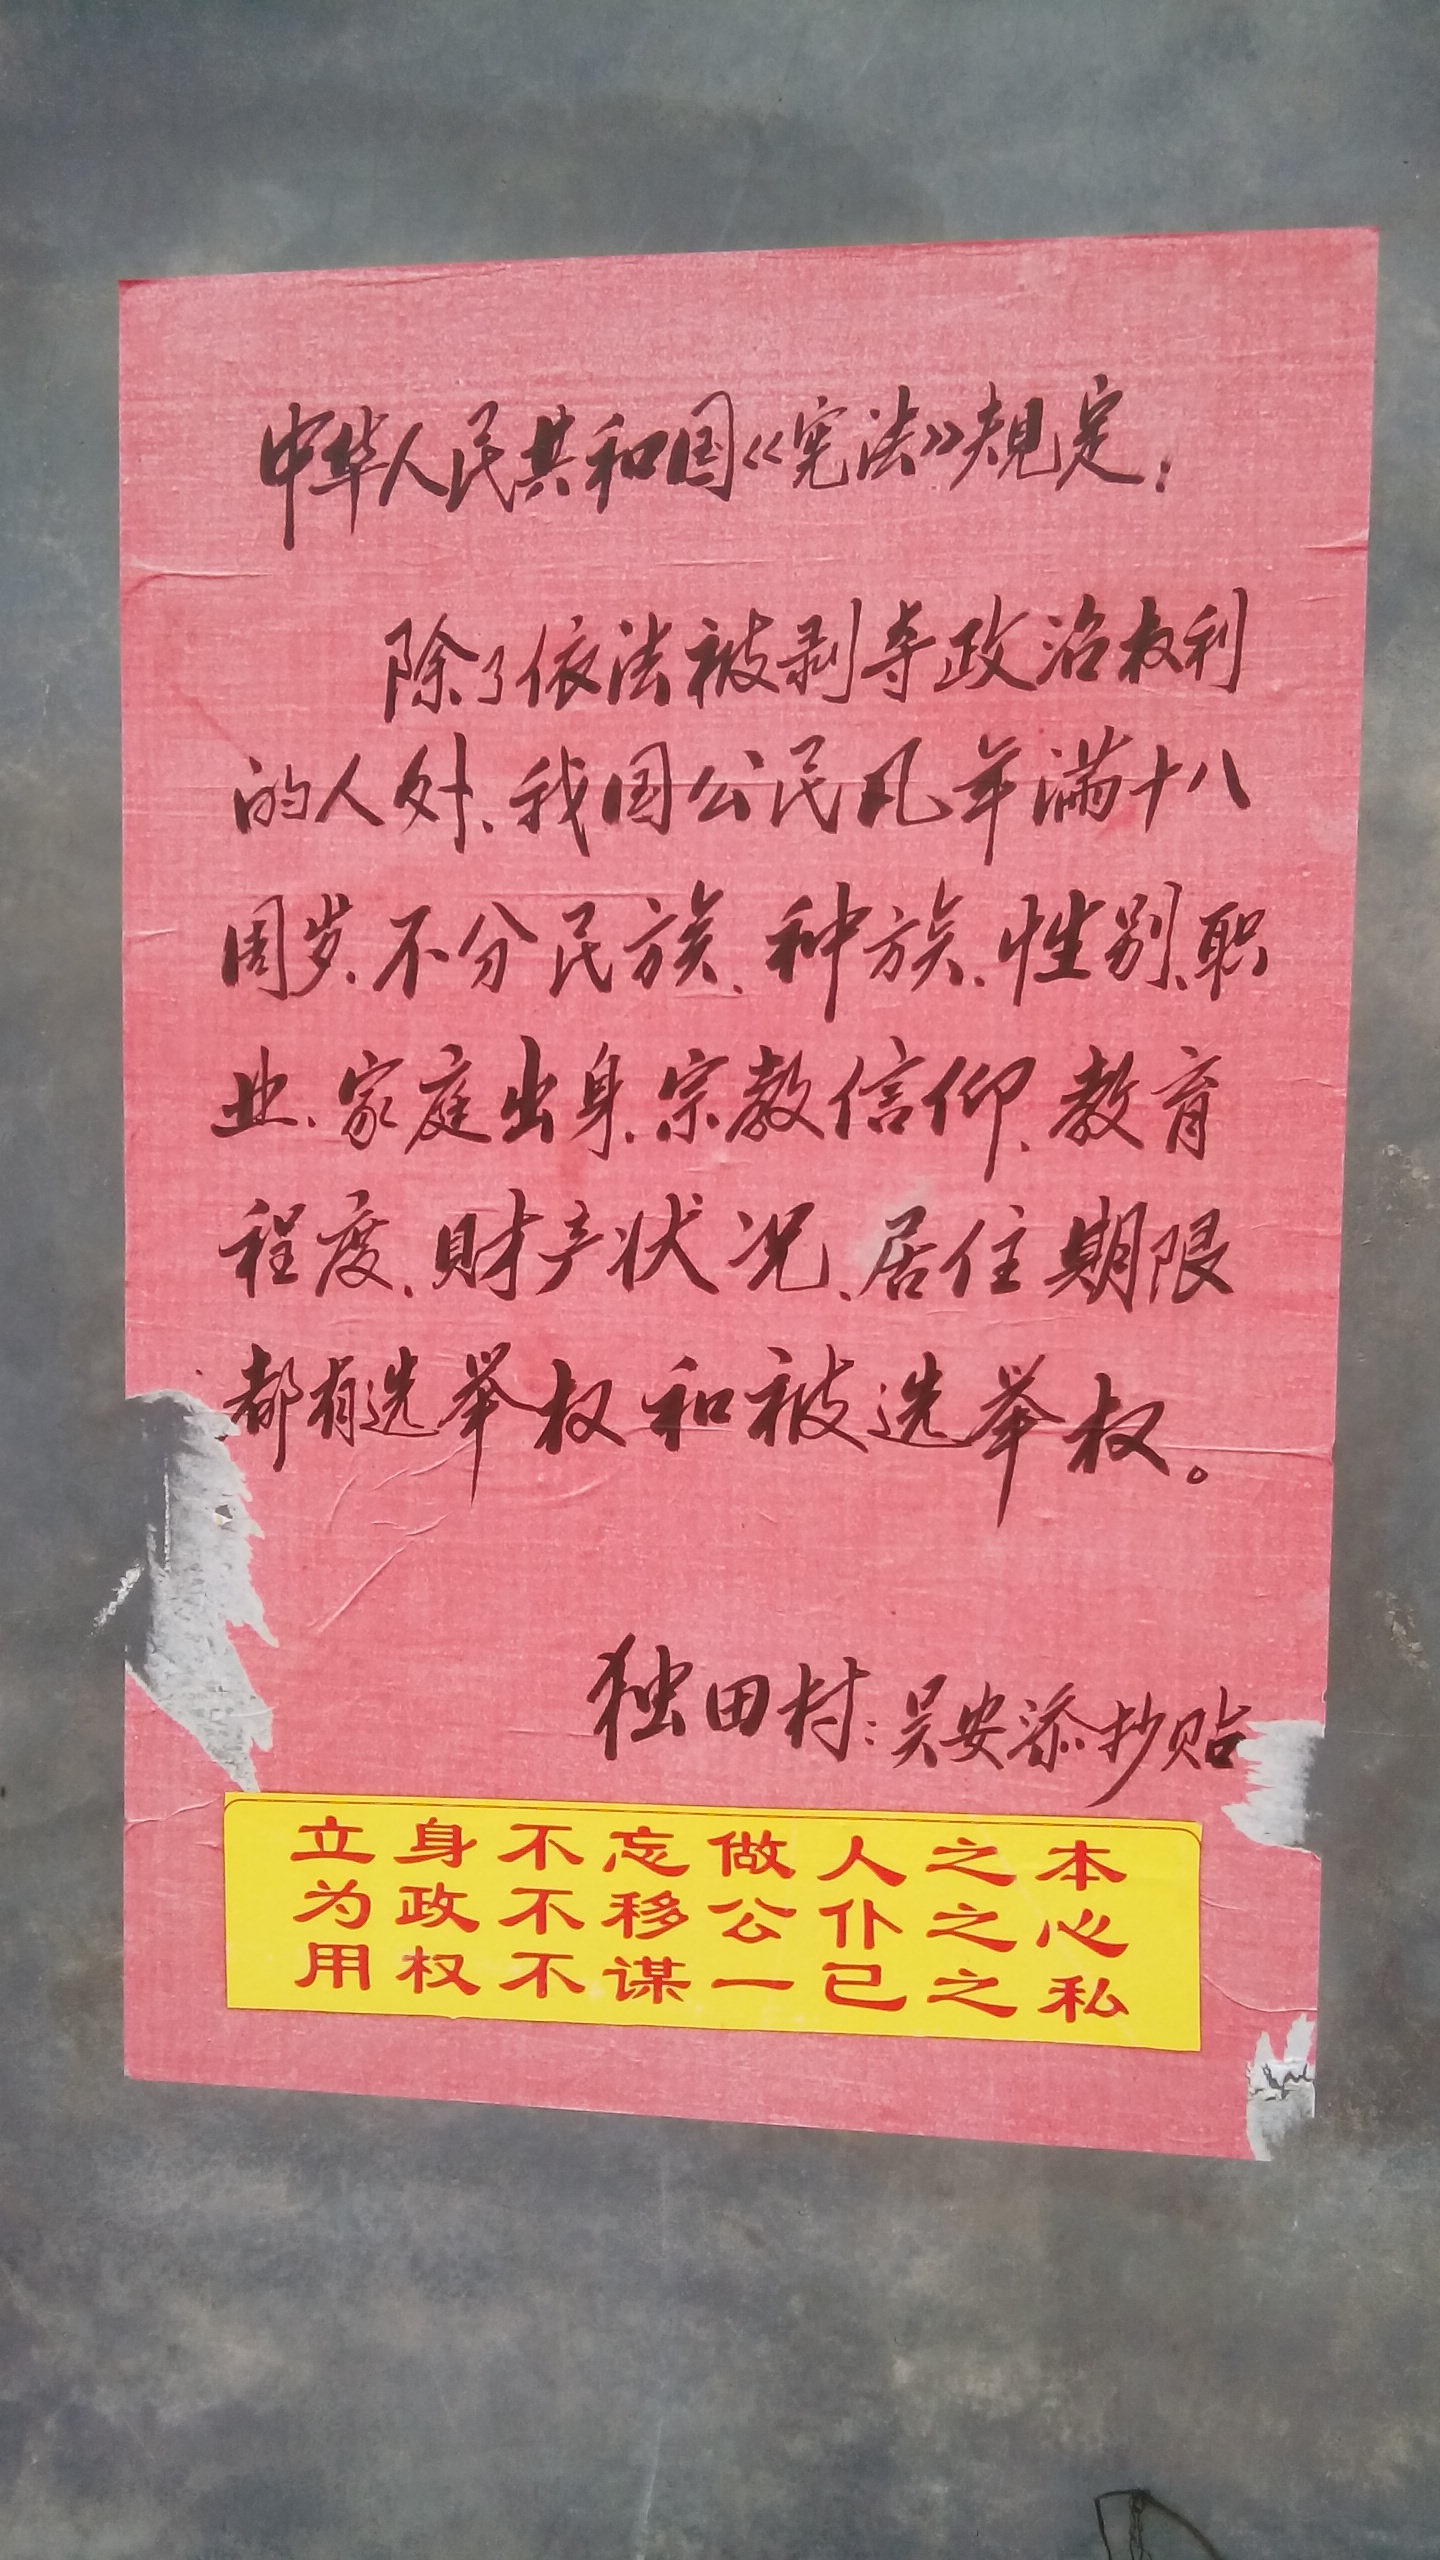 中华人民共和国《宪法》规定：
除了依法被剥夺政治权利
的人外、我国公民凡年满十八
周岁、不分民族、种族、性别、职
业、家庭出身、宗教信仰、教育
程度、财产状况、居住期限
都有选举权和被选举权。
独田村：吴安添抄贴
立身不忘做人之本
为政不移公仆之心
用权不谋一己之私